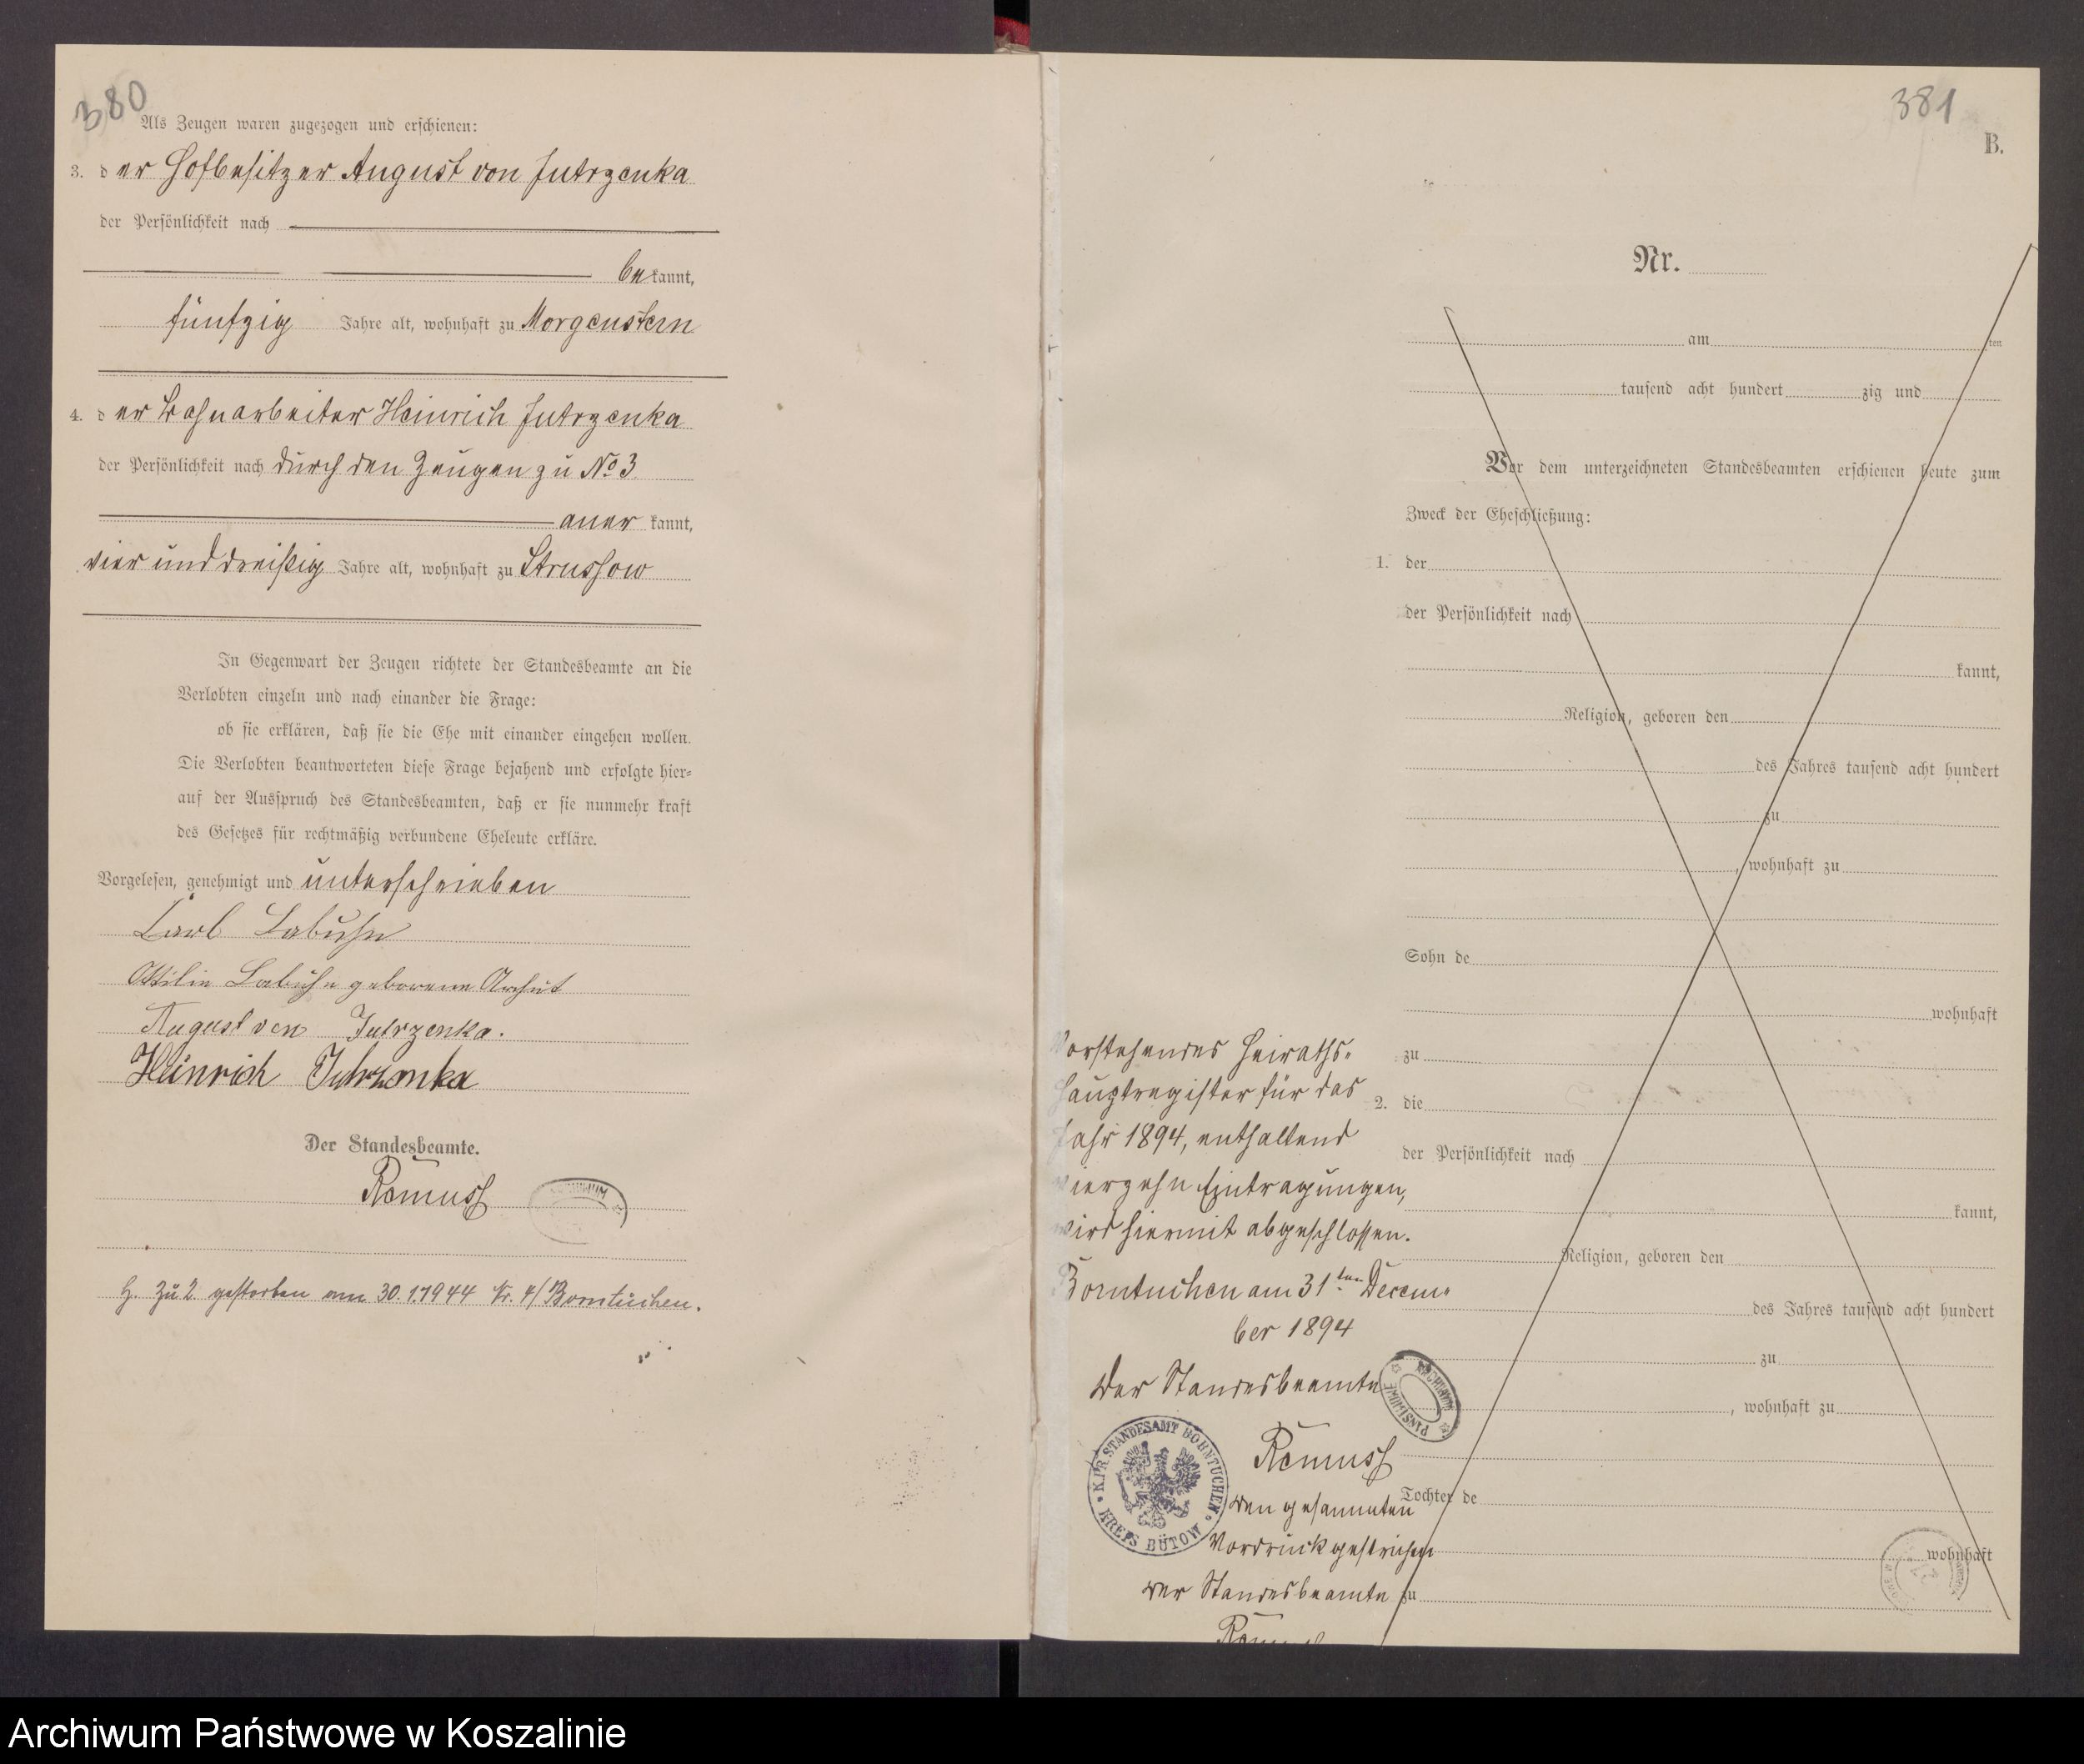 380
Als Zeugen waren zugezogen und erschienen:
3. der Hofbesitzer August von Jutrzenka
der Persönlichkeit nach
bekannt,
fünfzig Jahre alt, wohnhaft zu Morgenstern
4. der Bahnarbeiter Heinrich Jutrzenka
der Persönlichkeit nach durch den Zeugen zu No 3
anerkannt,
vier und dreißig Jahre alt, wohnhaft zu Strussow
In Gegenwart der Zeugen richtete der Standesbeamte an die
Verlobten einzeln und nach einander die Frage:
ob sie erklären, daß sie die Ehe mit einander eingehen wollen.
Die Verlobten beantworteten diese Frage bejahend und erfolgte hier-
auf der Ausspruch des Standesbeamten, daß er sie nunmehr kraft
des Gesetzes für rechtmäßig verbundene Eheleute erkläre.
Vorgelesen, genehmigt und unterschrieben
Carl Labuhn
Ottilie Labuhn geborene Archut
August von Jutrzenka.
Heinrich Jutrzenka
Der Standesbeamte.
Remuss
H. Zu 2 gestorben am 30.1.1944 Nr. 4/Borntuchen.
381
B.
Nr.
am ten
tausend acht hundert zig und
Vor dem unterzeichneten Standesbeamten erschienen heute zum
Zweck der Eheschließung:
1. der
der Persönlichkeit nach
kannt,
Religion, geboren den
des Jahres tausend acht hundert
zu
, wohnhaft zu
Sohn de
wohnhaft
zu
2. die
der Persönlichkeit nach
kannt,
Religion, geboren den
des Jahres tausend acht hundert
zu
, wohnhaft zu
Tochter de
wohnhaft
zu
Vorstehendes Heiraths-
Hauptregister für das
Jahr 1894, enthaltend
vierzehn Eintragungen,
wird hiermit abgeschlossen.
Borntuchen am 31ten Decem-
ber 1894
Der Standesbeamte
Remuss
K. PR. STANDESAMT BORNTUCHEN
KREIS BÜTOW
Den gesammten
Vordruck gestrichen
Der Standesbeamte
Remuss
Archiwum Państwowe w Koszalinie